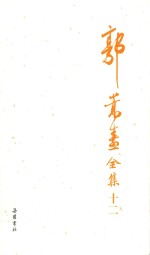 郭嵩焘全集 十二
岳麓书社